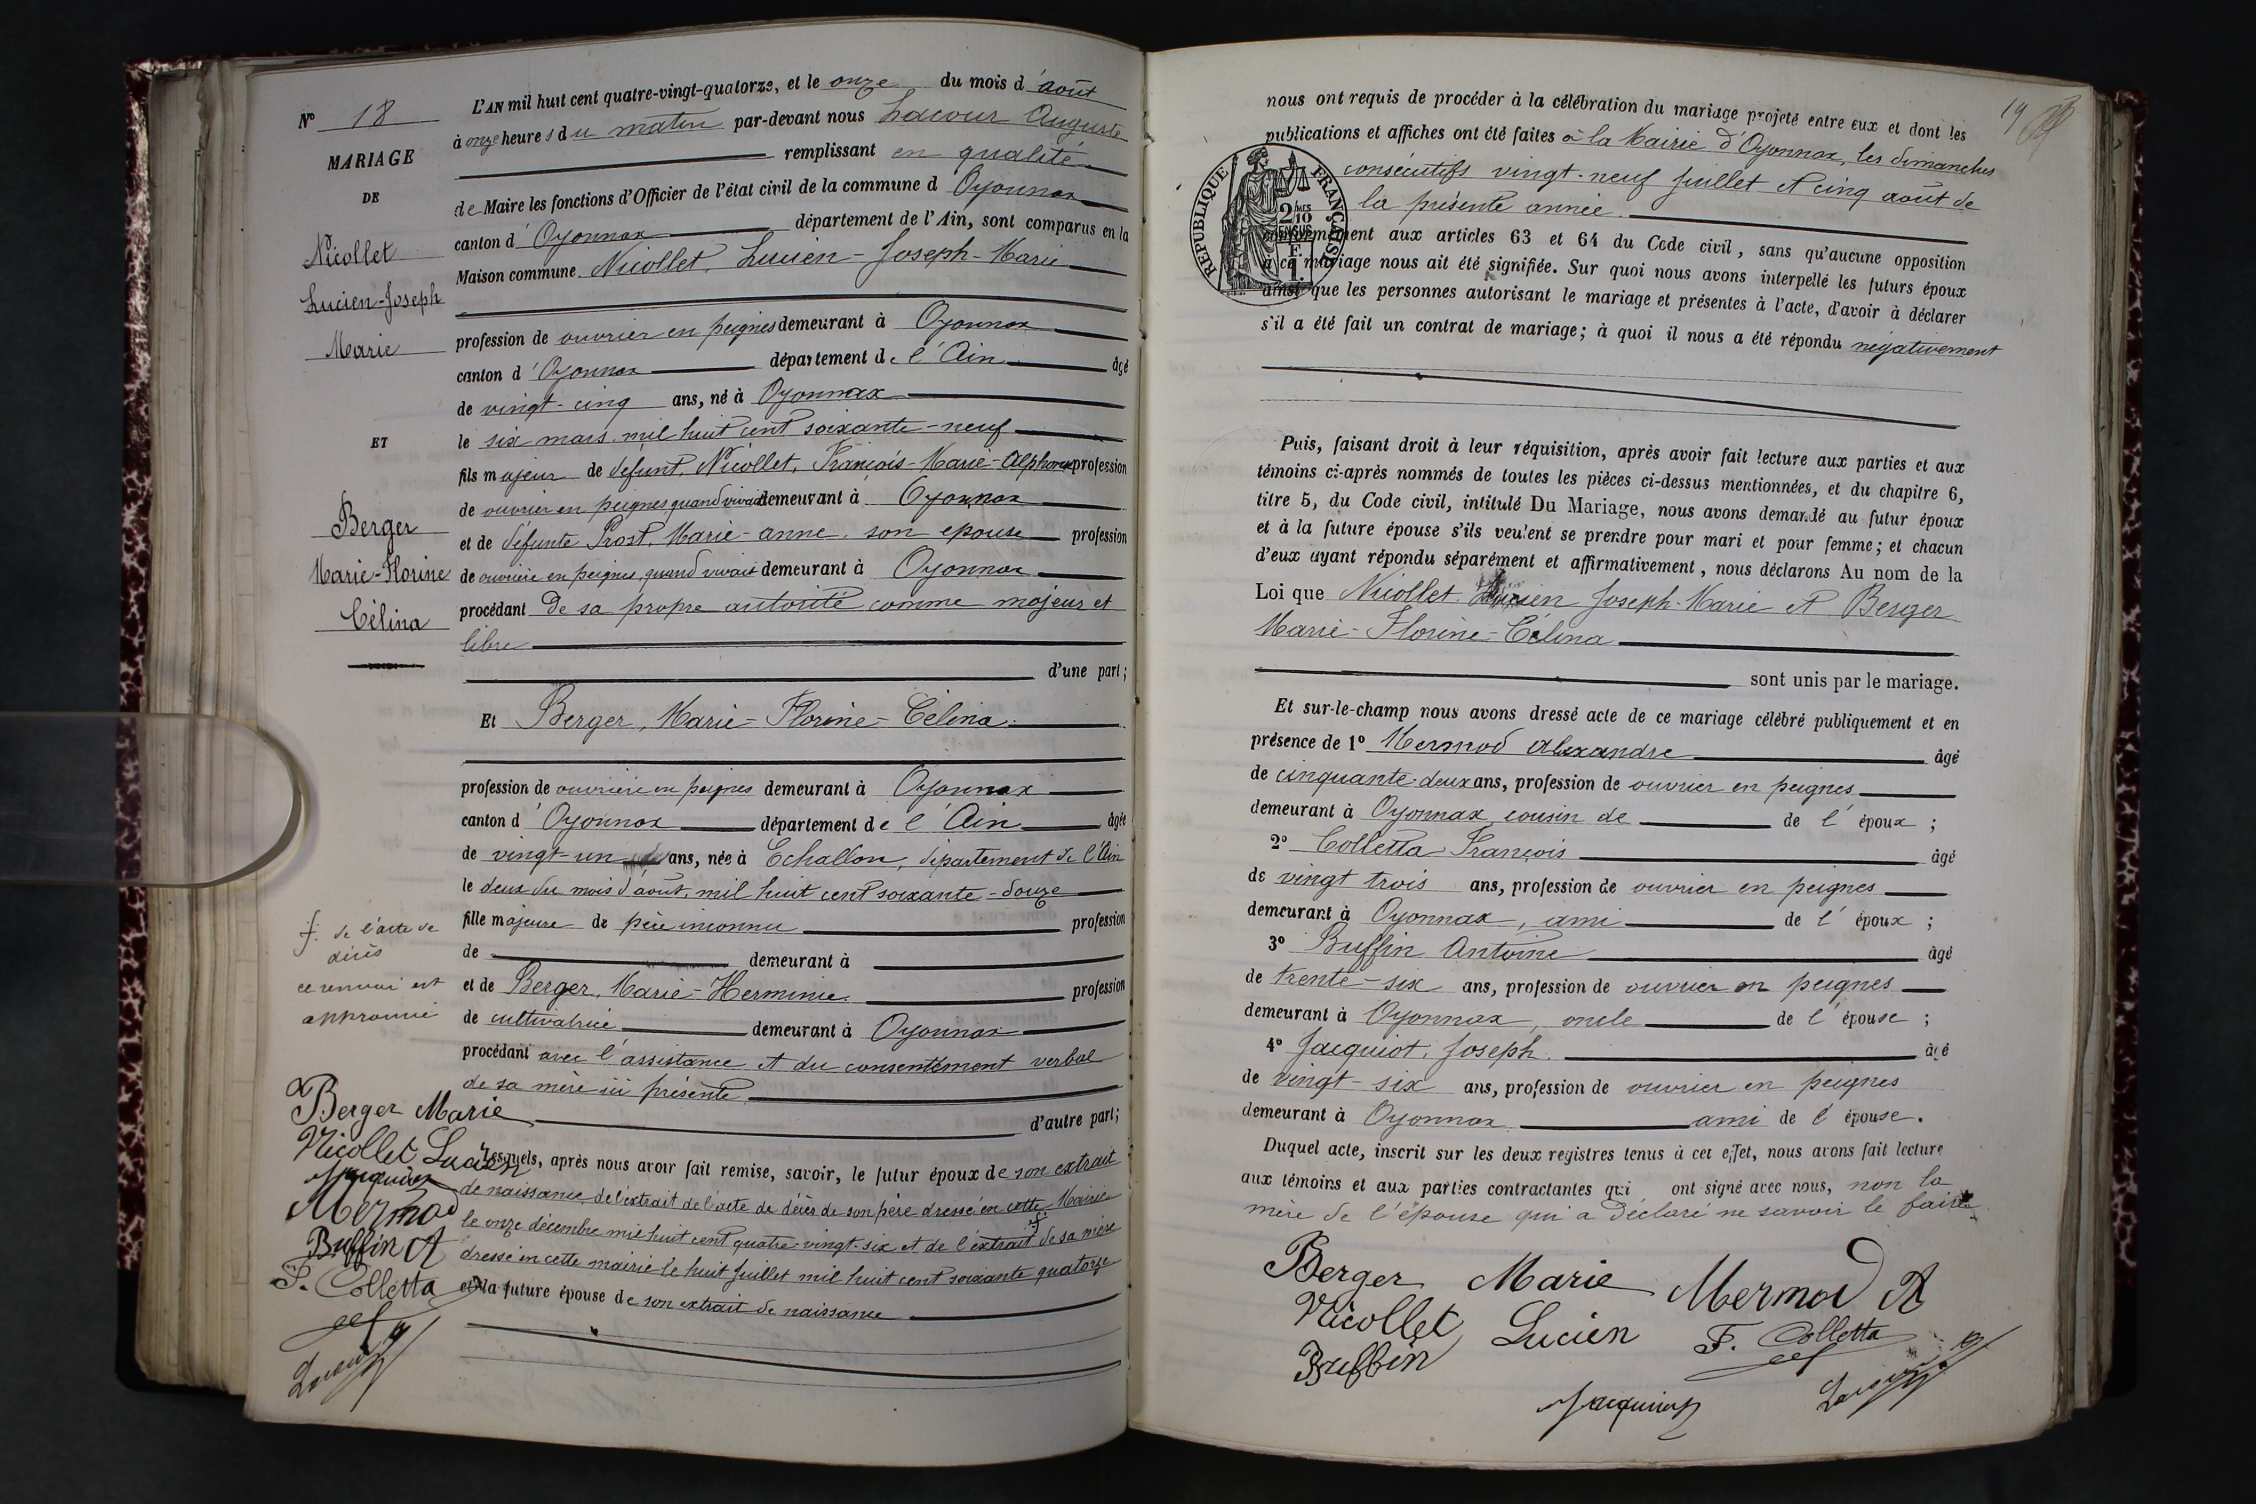 N° 18
MARIAGE
DE
Nicollet
Lucien-Joseph
Marie
ET
Berger
Marie-Florine
Célina
f. de l'acte de
décès
ce renvoi est
approuvé
Berger Marie
Nicollet Lucien
Jacquiot
Mermod
Buffin A
F. Colletta
Lacour
L'AN mil huit cent quatre-vingt-quatorze, et le onze du mois d'août
à onze heures du matin par-devant nous Lacour Auguste
remplissant en qualité
de Maire les fonctions d'Officier de l'état civil de la commune d Oyonnax
canton d'Oyonnax département de l'Ain, sont comparus en la
Maison commune Nicollet, Lucien-Joseph-Marie
profession de ouvrier en peignes demeurant à Oyonnax
canton d'Oyonnax département de l'Ain âgé
de vingt-cinq ans, né à Oyonnax
le six mars mil huit cent soixante-neuf
fils majeur de défunt Nicollet, François-Marie-Alphonse profession
de ouvrier en peignes quand vivait demeurant à Oyonnax
et de défunte Prost, Marie-anne, son épouse profession
de ouvrière en peignes, quand vivait demeurant à Oyonnax
procédant de sa propre autorité comme majeur et
libre
d'une part;
Et Berger, Marie-Florine-Célina
profession de ouvrière en peignes demeurant à Oyonnax
canton d'Oyonnax département de l'Ain âgée
de vingt-un ans, née à Echallon, département de l'Ain
le deux du mois d'août, mil huit cent soixante-douze
fille majeure de père inconnu profession
de demeurant à
et de Berger, Marie-Herminie profession
de cultivatrice demeurant à Oyonnax
procédant avec l'assistance et du consentement verbal
de sa mère ici présente
d'autre part;
Lesquels, après nous avoir fait remise, savoir, le futur époux de son extrait
de naissance, de l'extrait de l'acte de décès de son père dressé en cette Mairie
le onze décembre mil huit cent quatre-vingt-six et de l'extrait f de sa mère
dressé en cette mairie le huit juillet mil huit cent soixante quatorze
et la future épouse de son extrait de naissance
19
nous ont requis de procéder à la célébration du mariage projeté entre eux et dont les
publications et affiches ont été faites à la Mairie d'Oyonnax, les dimanches
consécutifs vingt-neuf juillet et cinq août de
la présente année.
RÉPUBLIQUE FRANÇAISE
2/10 EN SUS
conformément aux articles 63 et 64 du Code civil, sans qu'aucune opposition
à ce mariage nous ait été signifiée. Sur quoi nous avons interpellé les futurs époux
ainsi que les personnes autorisant le mariage et présentes à l'acte, d'avoir à déclarer
s'il a été fait un contrat de mariage; à quoi il nous a été répondu négativement
Puis, faisant droit à leur réquisition, après avoir fait lecture aux parties et aux
témoins ci-après nommés de toutes les pièces ci-dessus mentionnées, et du chapitre 6,
titre 5, du Code civil, intitulé Du Mariage, nous avons demandé au futur époux
et à la future épouse s'ils veulent se prendre pour mari et pour femme; et chacun
d'eux ayant répondu séparément et affirmativement, nous déclarons Au nom de la
Loi que Nicollet Lucien Joseph-Marie et Berger
Marie-Florine-Célina
sont unis par le mariage.
Et sur-le-champ nous avons dressé acte de ce mariage célébré publiquement et en
présence de 1° Mermod Alexandre âgé
de cinquante-deux ans, profession de ouvrier en peignes
demeurant à Oyonnax, cousin de de l'époux;
2° Colletta François âgé
de vingt trois ans, profession de ouvrier en peignes
demeurant à Oyonnax, ami de l'époux;
3° Buffin Antoine âgé
de trente-six ans, profession de ouvrier en peignes
demeurant à Oyonnax, oncle de l'épouse;
4° Jacquiot, Joseph âgé
de vingt-six ans, profession de ouvrier en peignes
demeurant à Oyonnax ami de l'épouse.
Duquel acte, inscrit sur les deux registres tenus à cet effet, nous avons fait lecture
aux témoins et aux parties contractantes qui ont signé avec nous, non la
mère de l'épouse qui a déclaré ne savoir le faire.
Berger Marie Mermod A
Nicollet Lucien F. Colletta
Buffin
Jacquiot Lacour